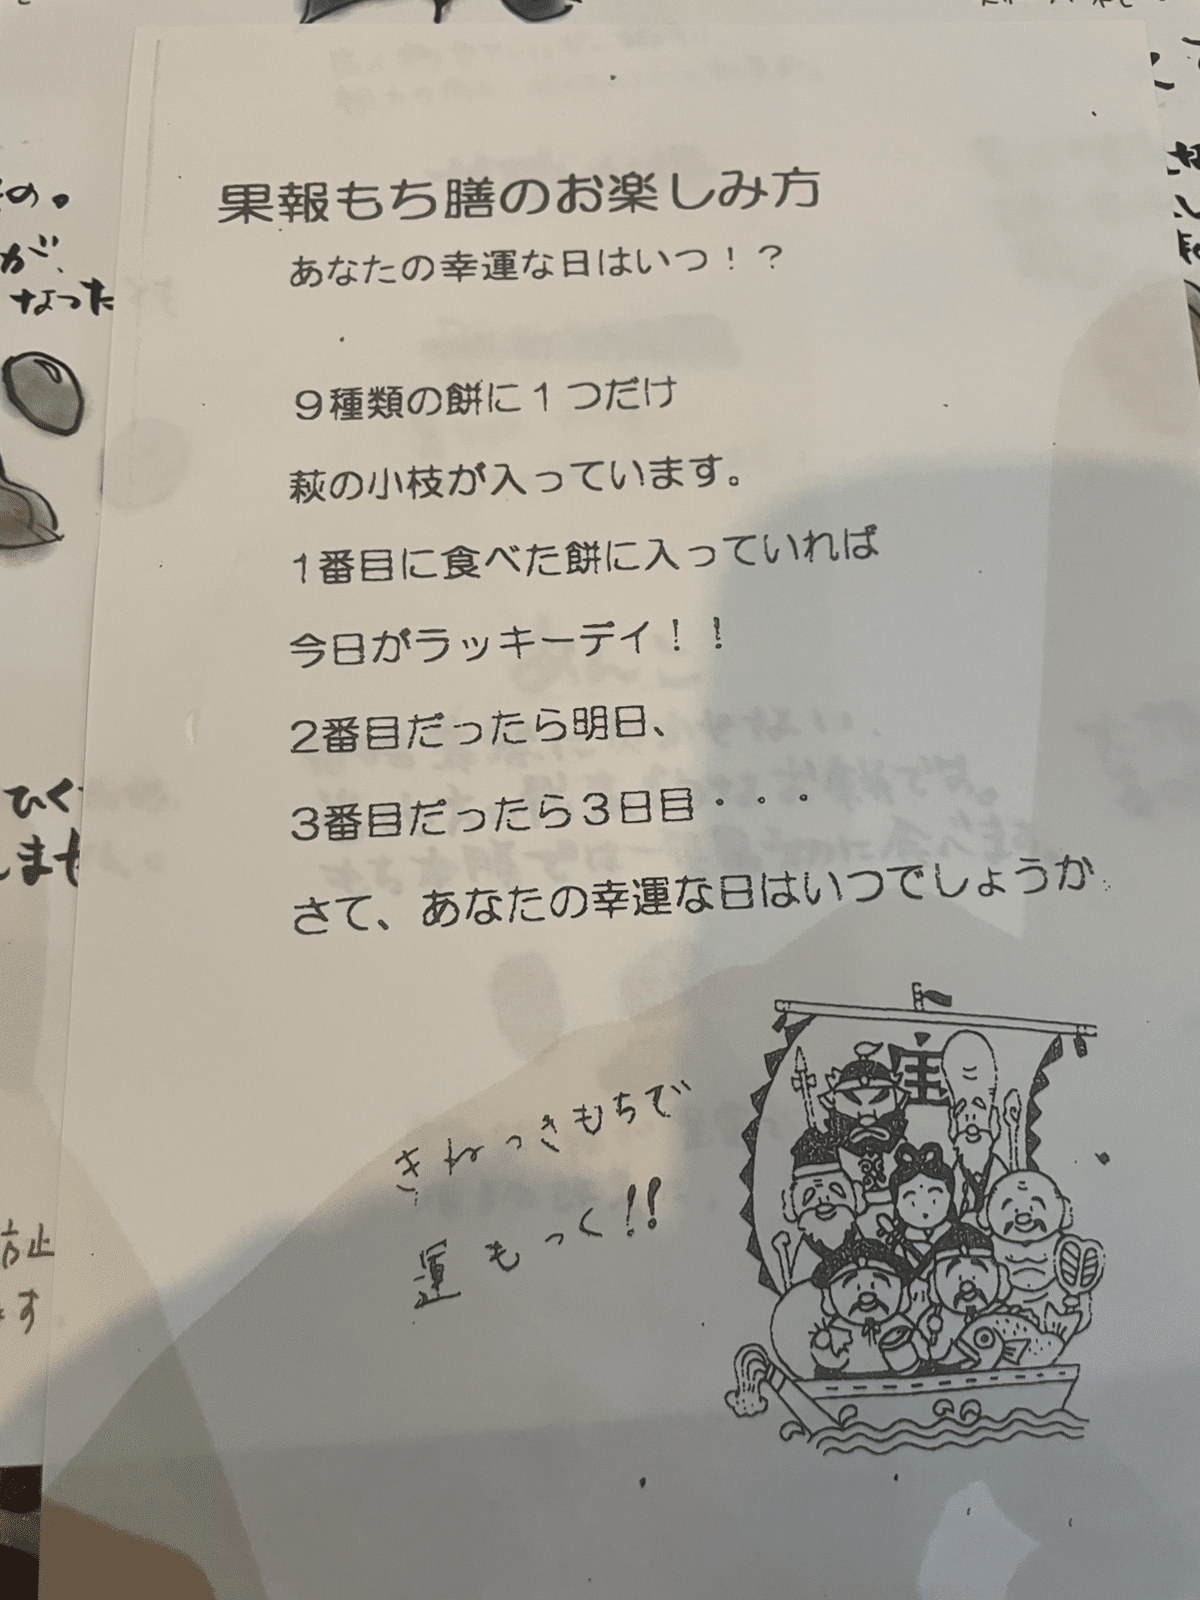 果報もち膳のお楽しみ方
あなたの幸運な日はいつ！？
９種類の餅に１つだけ
萩の小枝が入っています。
1番目に食べた餅に入っていれば
今日がラッキーデイ！！
2番目だったら明日、
3番目だったら３日目・・・
さて、あなたの幸運な日はいつでしょうか
きねつきもちで
運もつく!!
宝
の。
が、
なった
ひく
しませ
防止
ます